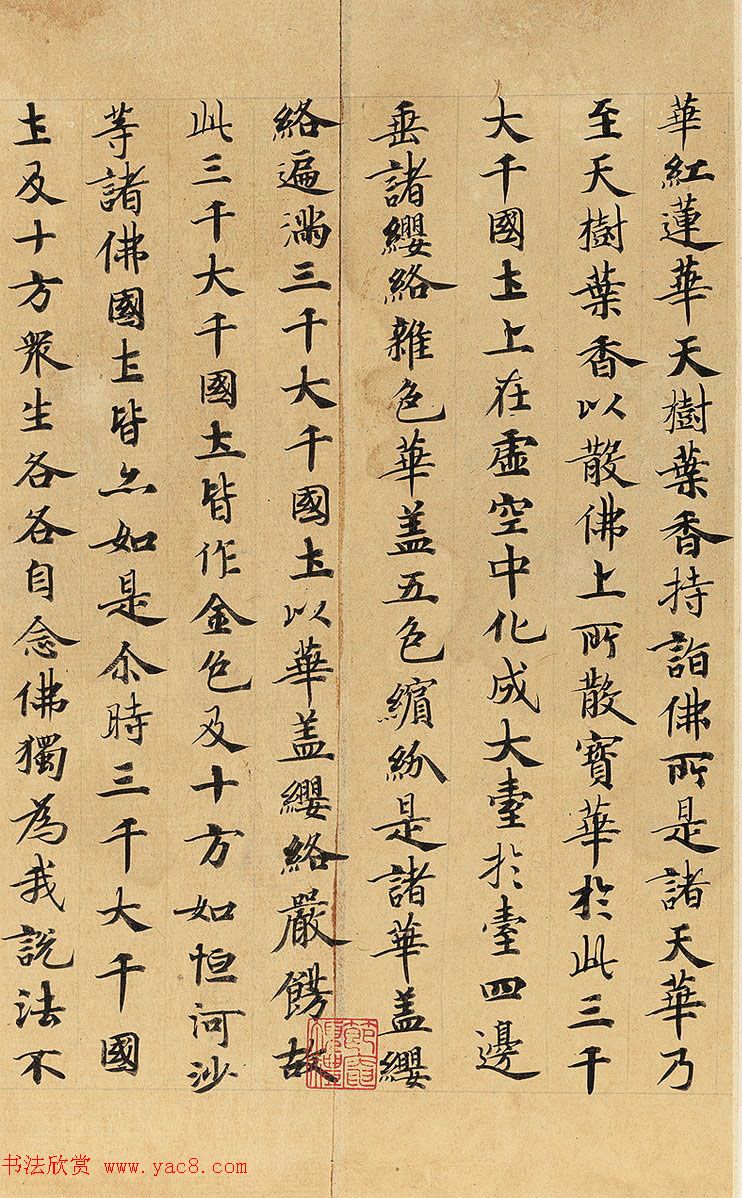 華紅蓮華天樹葉香持詣佛所是諸天華乃
至天樹葉香以散佛上所散寶華於此三千
大千國土上在虛空中化成大臺於臺四邊
垂諸纓絡雜色華蓋五色繽紛是諸華蓋纓
絡遍滿三千大千國土以華蓋纓絡嚴餝故
此三千大千國土皆作金色及十方如恒河沙
等諸佛國土皆尒如是尒時三千大千國
土及十方衆生各各自念佛獨為我說法不
书法欣赏 www.yac8.com